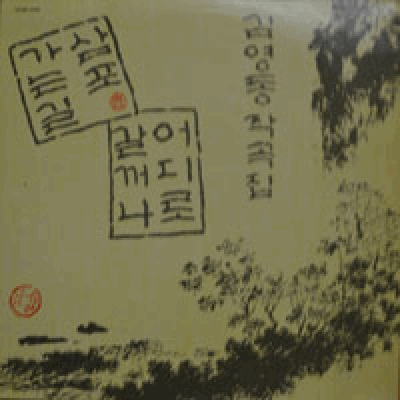 김영동 작곡집
삼포
가는길
어디로
갈꺼나